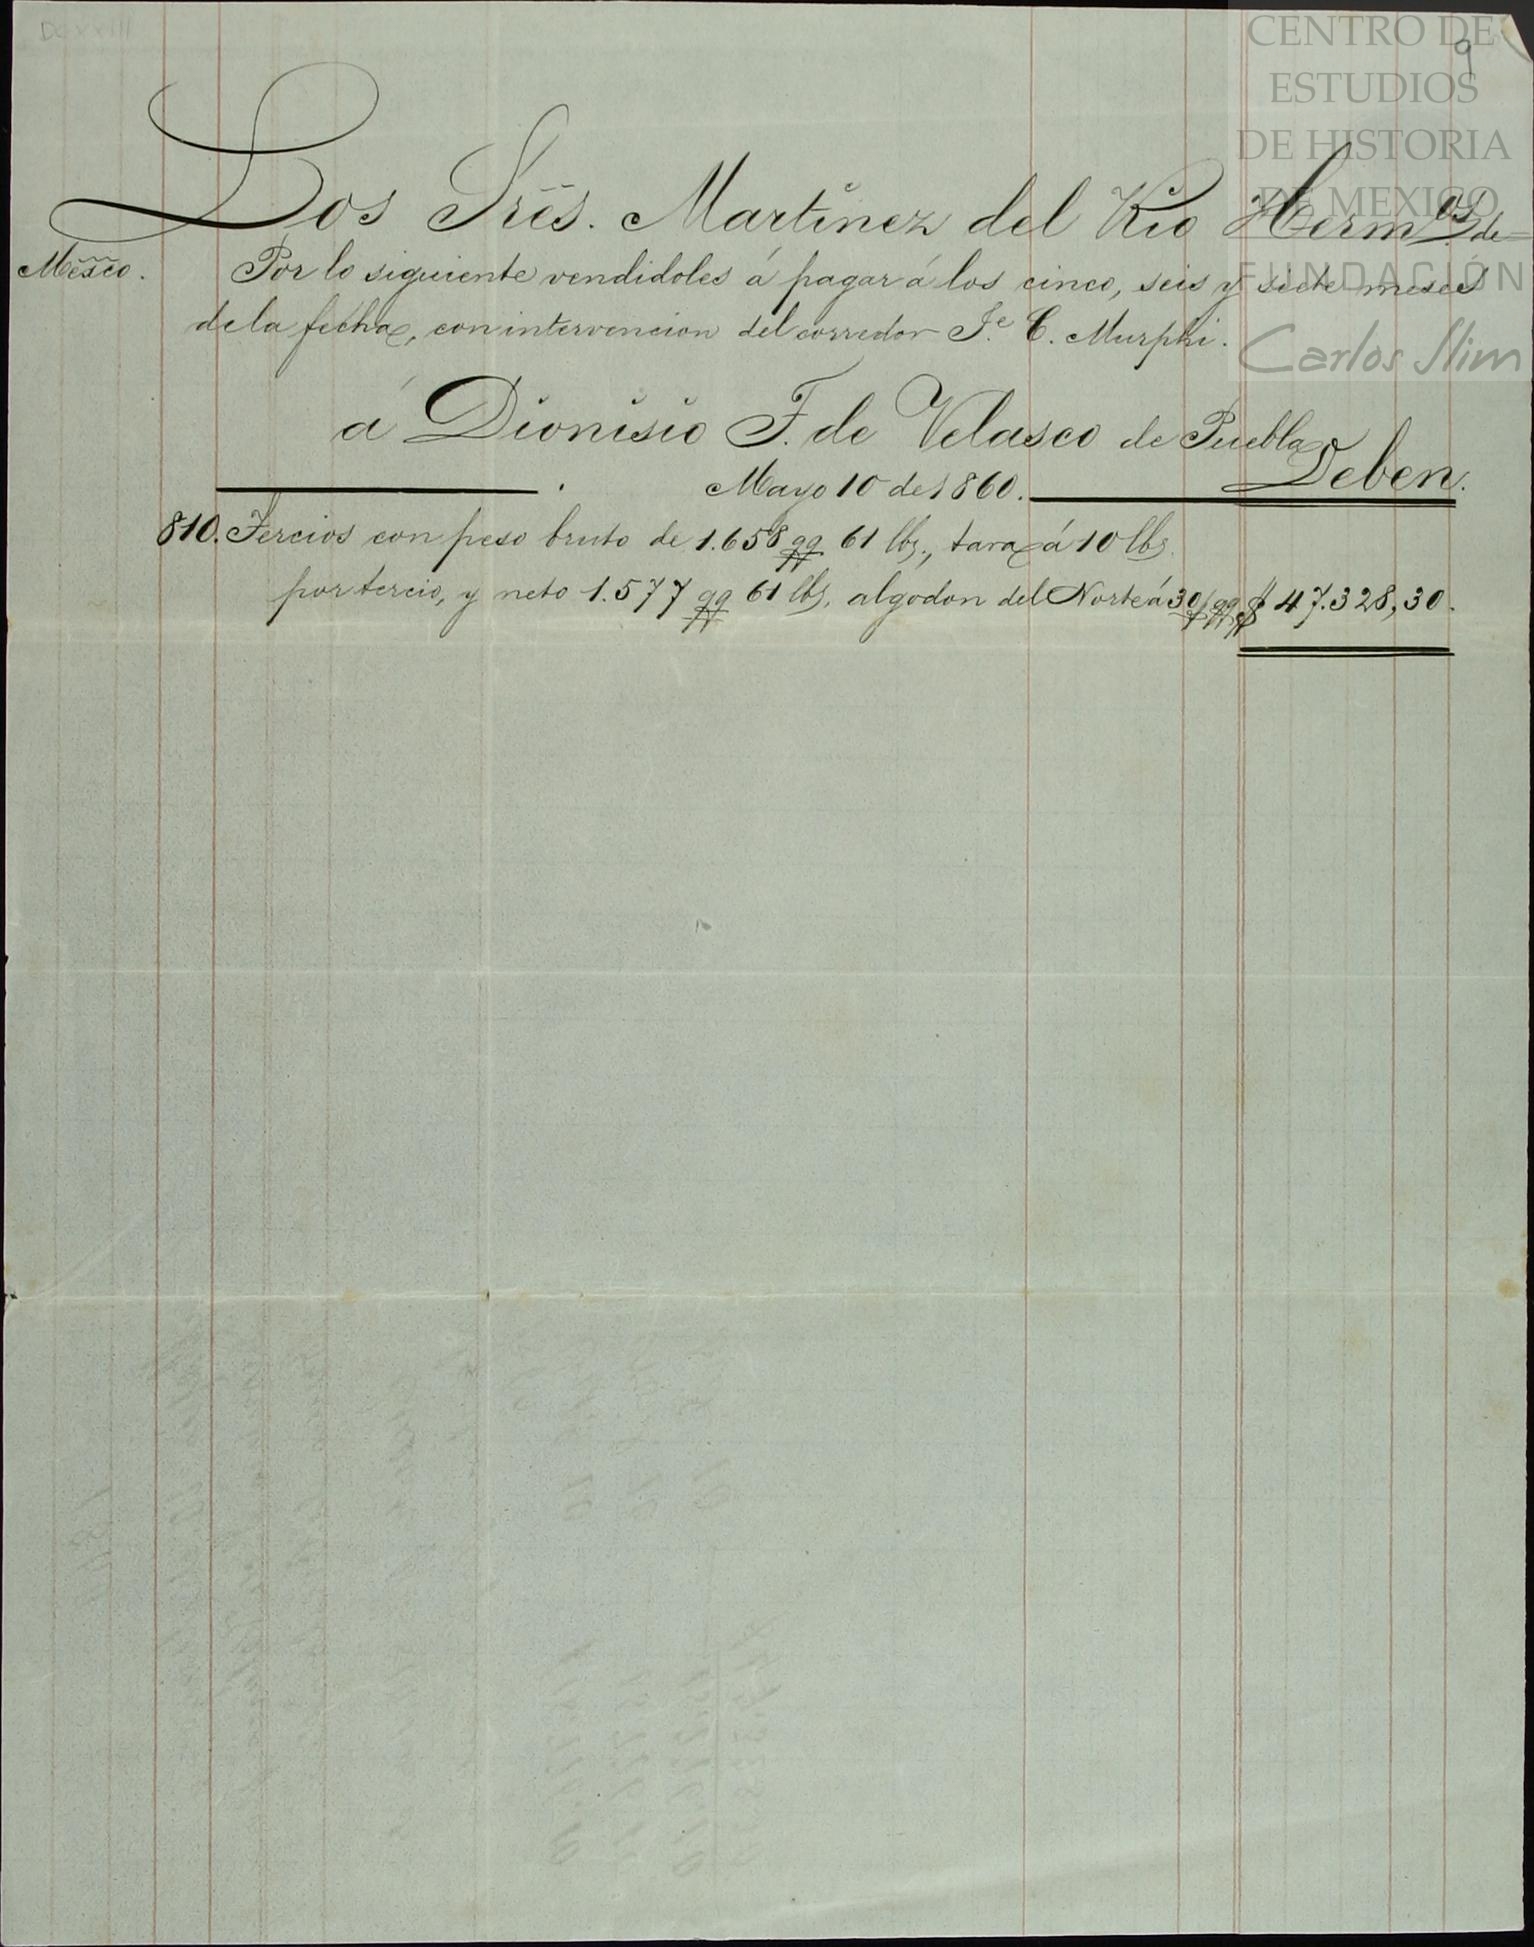 DCXXIII
9
CENTRO DE
ESTUDIOS
DE HISTORIA
DE MEXICO
FUNDACIÓN
Carlos Slim
Los Sres. Martinez del Rio Herm.os de
Mesco. Por lo siguiente vendidoles á pagar á los cinco, seis y siete meses
de la fecha, con intervencion del corredor J.e C. Murphi.
á Dionisio F. de Velasco de Puebla Deben.
Mayo 10 de 1860.
810. Tercios con peso bruto de 1.658 qq 61 lbs., tara á 10 lbs.
por tercio, y neto 1.577 qq 61 lbs. algodon del Norte á 30$ qq $ 47.328,30.